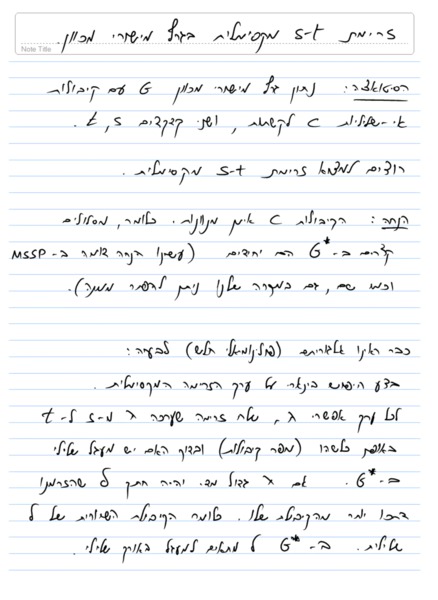 זרימת s-t מקסימלית בגרף מישורי מכוון.
Note Title
הסיטואציה: נתון גרף מישורי מכוון G עם קיבולות
אי-שליליות C לקשתות, ושני קדקדים s, t.
רוצים למצוא זרימת s-t מקסימלית.
הנחה: הקיבולות C אינן מנוונות. כלומר, מסלולים
קצרים ב-G* הם יחידים (עשינו הנחה דומה ב-MSSP
וכמו שם, גם במקרה שלנו ניתן להפטר ממנה).
כבר ראינו אלגוריתם (פולינומיאלי חלש) לבעיה:
בצע חיפוש בינארי על ערך הזרימה המקסימלית.
לכל ערך אפשרי λ, שלח זרימה שערכה λ מ-s ל-t
באופן כלשהו (מפר קיבולות) ובדוק האם יש מעגל שלילי
ב-G*. אם λ גדול מדי יהיה חתך שהזרמנו
דרכו יותר מהקיבולת שלו. כלומר הקיבולת השיורית של
שלילית. ב-G* מתאים למעגל באורך שלילי.